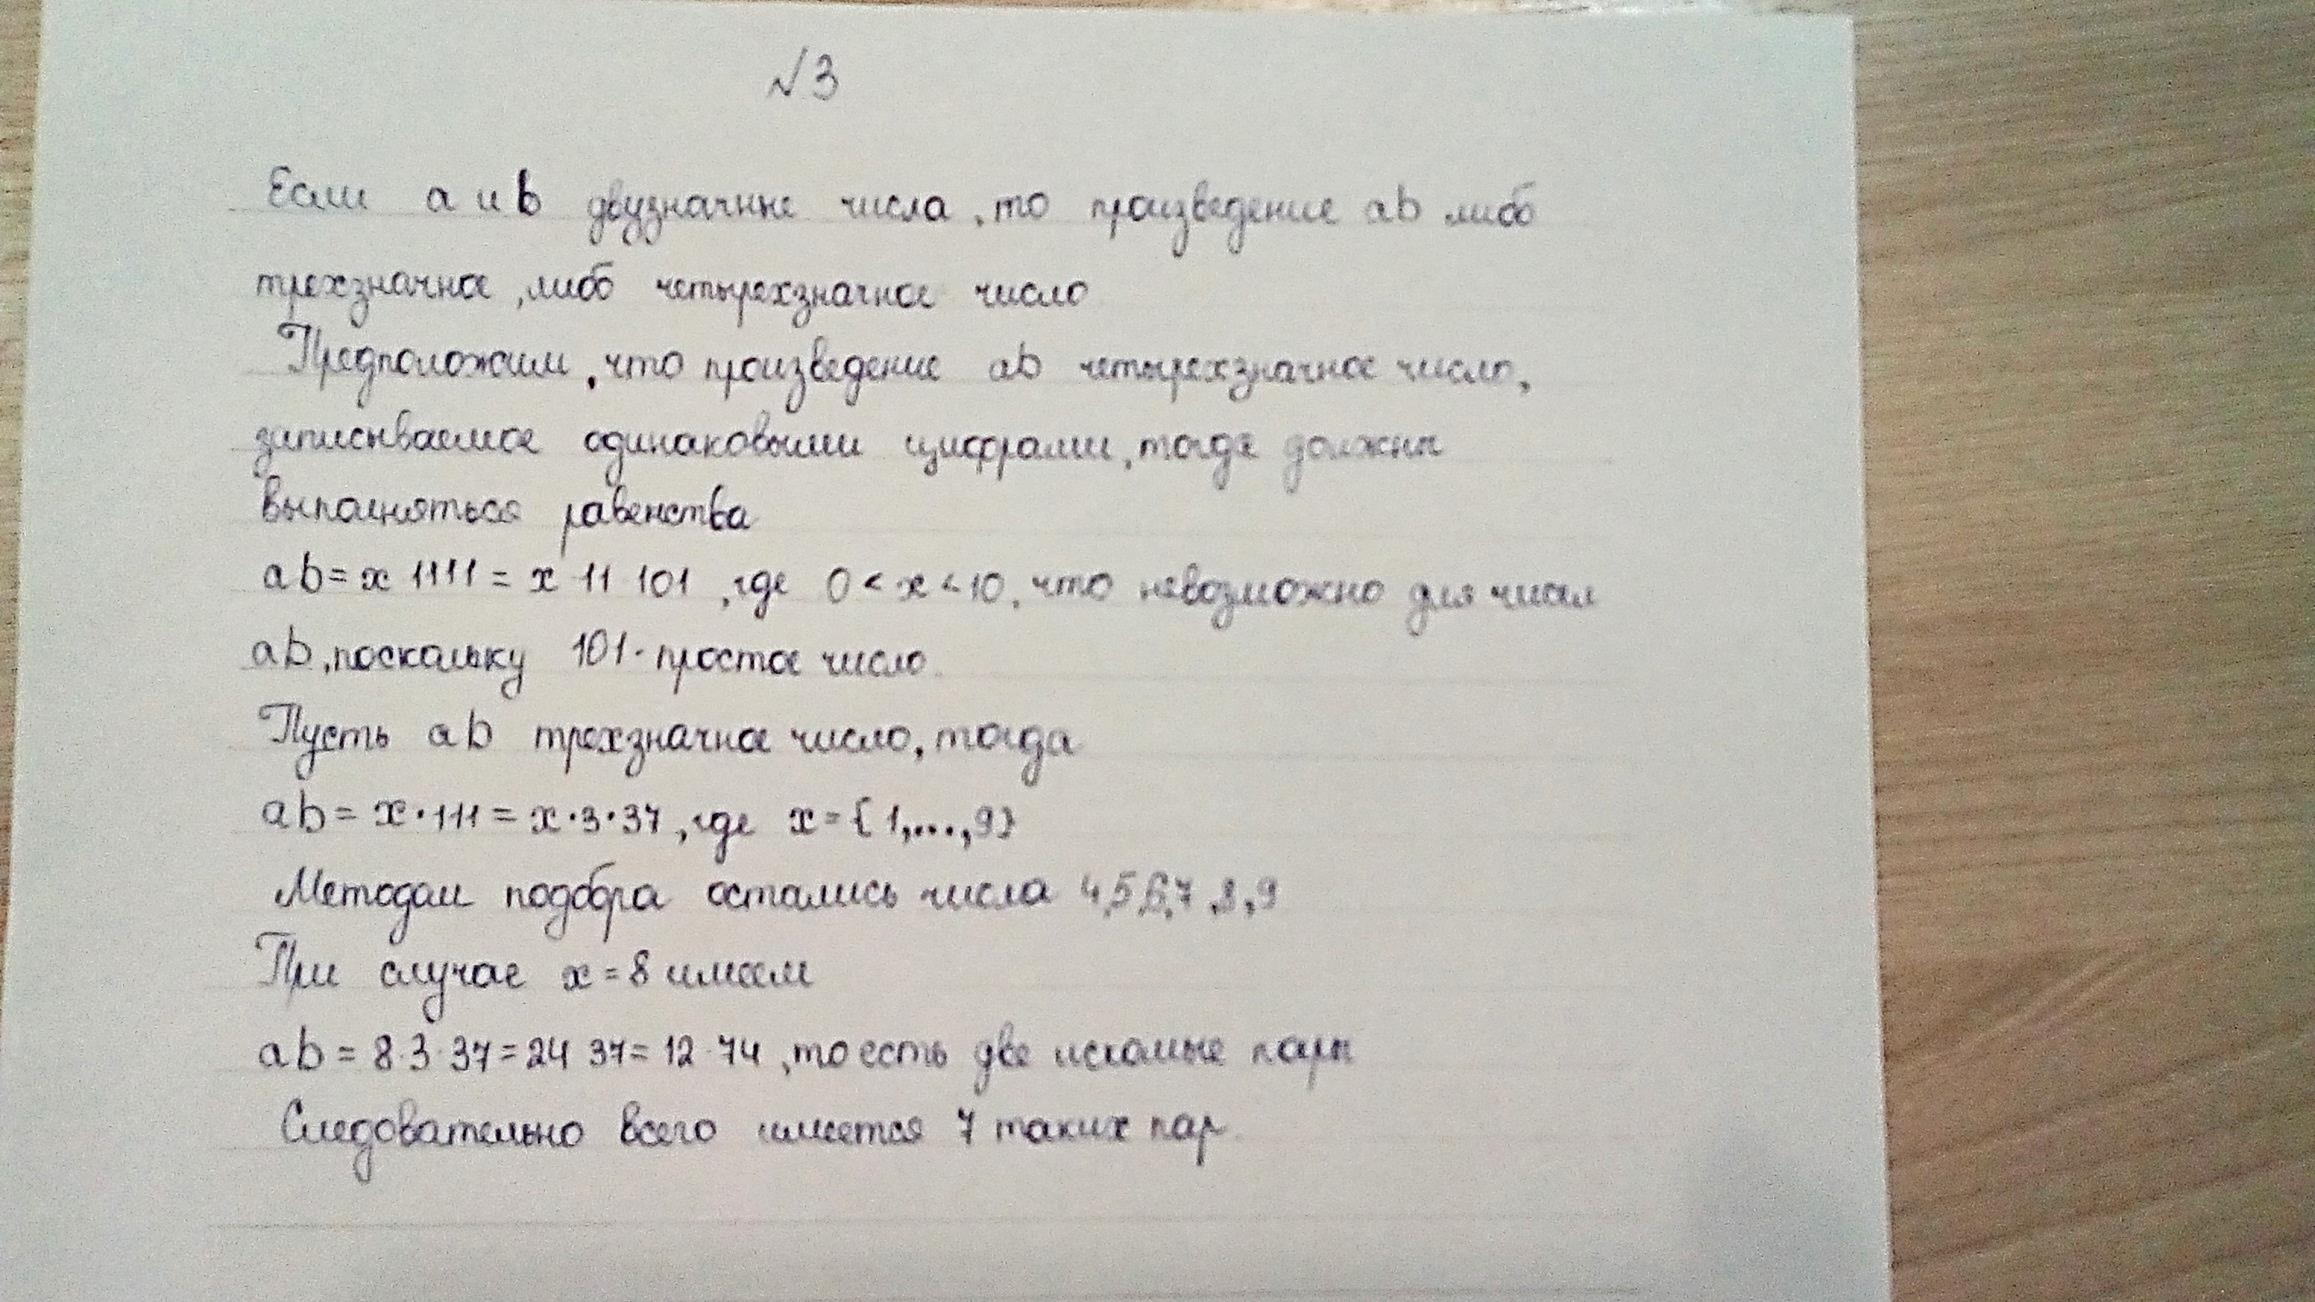 √3
Если a и b двузначные числа, то произведение ab либо
трехзначное, либо четырехзначное число
Предположим, что произведение ab четырехзначное число,
записываемое одинаковыми цифрами, тогда должны
выполняться равенства
ab = x 1111 = x 11 101, где 0 < x < 10, что невозможно для чисел
ab, поскольку 101 - простое число.
Пусть ab трехзначное число, тогда
ab = x · 111 = x · 3 · 37, где x = {1,...,9}
Методом подбора остались числа 4,5,6,7,8,9
При случае x = 8 имеем
ab = 8 · 3 · 37 = 24 37 = 12 · 74, то есть две искомые пары
Следовательно всего имеется 7 таких пар.